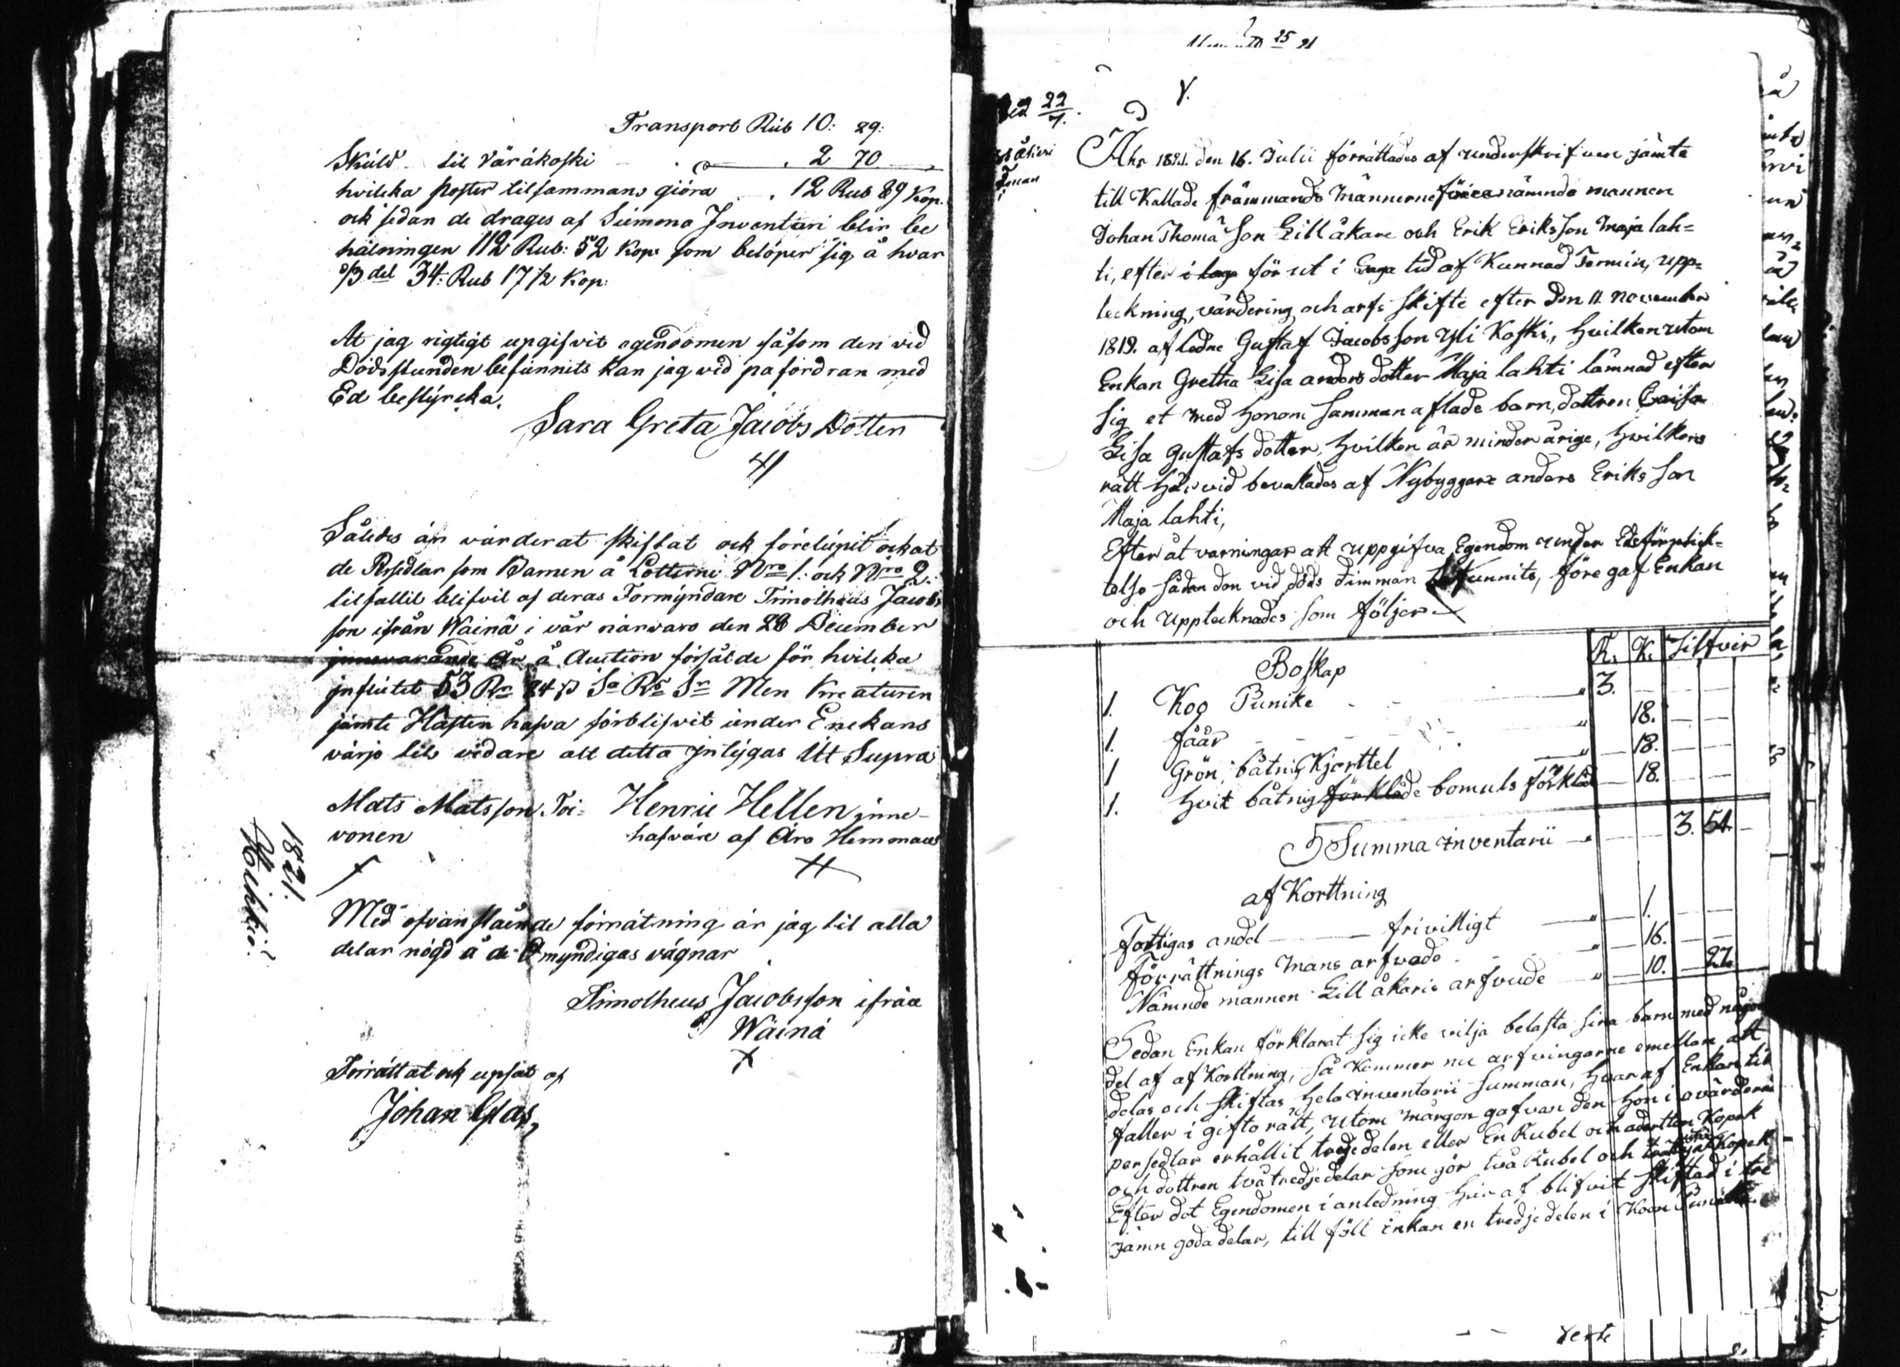 Transport Rub 10: 29:
Skuld til Väräkoski 2 70
hvilcka poster tilsammans giöra 12 Rub 89 Kop.
ock sedan de drages af Summa Inventari blir be
hålningen 112 Rub: 52 Kop: som belöper sig å hvar
1/3 del 34: Rub 17 1/2 Kop:
At jag rigtigt upgifvit egendomen såsom den vid
Dödsstunden befunnits kan jag vid påfordran med
Ed bestyrcka.
Sara Greta Jacobs Dotter
Således är värderat skiftat ock
de Persedlar som Barnen å Lotterne Nro 1: och Nro 2:
tilfallit blifvit af deras Förmyndare Timotheus Jacob
son ifrån Wäinä i vår närvaro den 28 December
innevarande År å Auction försålde för hvilcka
influtit 53 Rr 24 Men Kreaturen
jämte Hästen hafva förblifvit under Enckans
värjo tils vidare alt detta intygas Ut Supra
Mats Matsson Toi=
vonen
Henric Hellen inne-
hafvare af Äro Hemman
1821.
Med ofvanstående förrätning är jag til alla
delar nögd å de Omyndigas vägnar
Timotheus Jacobsson ifrån
Wäinä
Förrättat och upsat af
Johan Glas,
25 21
22
7.
Åhr 1821. den 16. Julii förrättades af underskrifven jämte
till Kallade främmande Männerne nämnde mannen
Johan Thomä Son Lill åkare och Erik Eriks Son Maja lah=
ti, efter i laga för ut i Laga tid af Kunnad Termin, upp=
teckning, värdering och arfs skifte efter den 11 November
1819. afledne Gustaf Jacobs Son Yli Koski, hvilken utom
Enkan Gretha Lisa anders dotter Maja lahti lämnad efter
sig et med honom samman aflade barn, dottren Caisa
Lisa Gustafs dotter, hvilken är minder årige, hvilkens
rätt här vid bevakades af Nybyggare anders Eriks Son
Maja lahti,
Efter åt varningar att uppgifva Egendom under
sådan den vid döds timman befunnits, före gaf Enkan
och upptecknades som följer
R. K. Silfver
Boskap
1. Kog Punike 3.
1. fåår 18.
1 Grön båtnig Kjorttel 18.
1. hvit båtnig förkläde bomuls förkläd 18.
Summa inventarii 3. 54.
af Korttning
fattigas andel frivilligt 1.
förrättnings Mans arfvode 16.
Nämnde mannen Lill åkaris arfvude 10. 27.
Sedan Enkan förklarat sig icke vilja belasta sina barn med någon
del af af Korttning, så Kommer nu arfvingarne emellan att
delas och skiftas hela inventarii Summan, hvar af Enkan till
faller i gifto rätt, utom Morgon gafvan den hon i ovärderade
persedlar erhållit tredjedelen eller En Rubel och aderton Kopek
och dottren två tredjedelar som gör två Rubel och Kopek
Efter det Egendomen i anledning här af blifvit skiftad i tre
jämn goda delar, till föll Enkan en tredje delen i Koen Punike
verte